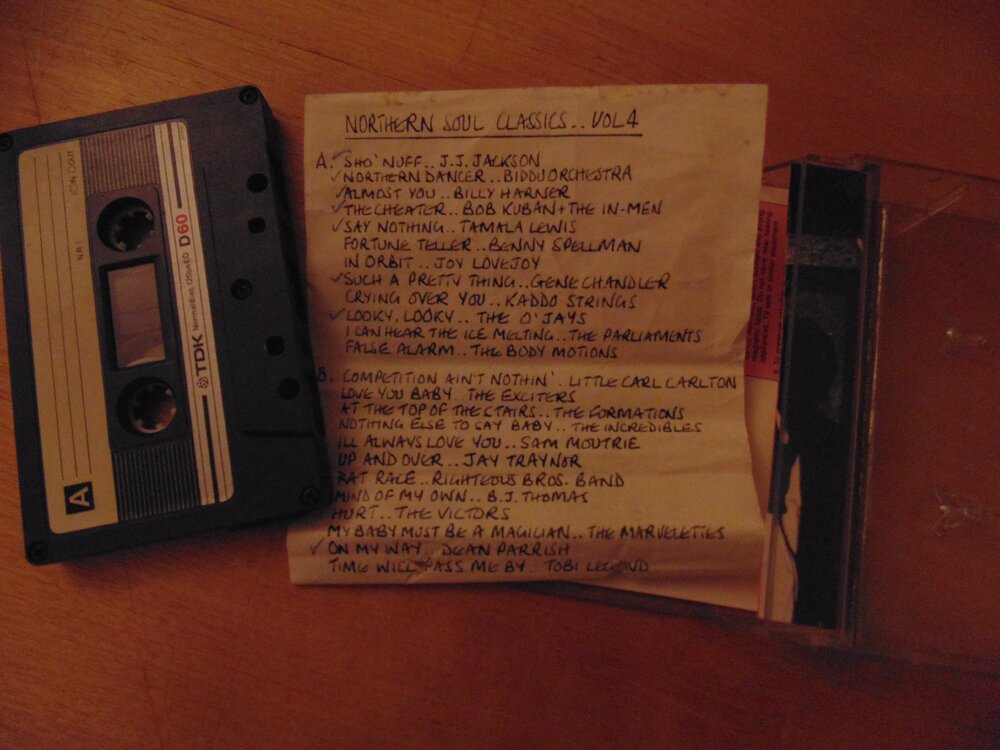 A
TDK Normal Bias 120µs EQ D60
N.R.
IN OUT
NORTHERN SOUL CLASSICS.. VOL 4
A. SHO' NUFF.. J.J. JACKSON
✓ NORTHERN DANCER.. BIDDU ORCHESTRA
✓ ALMOST YOU.. BILLY HARNER
✓ THE CHEATER.. BOB KUBAN + THE IN-MEN
✓ SAY NOTHING.. TAMALA LEWIS
FORTUNE TELLER.. BENNY SPELLMAN
IN ORBIT.. JOY LOVEJOY
✓ SUCH A PRETTY THING.. GENE CHANDLER
CRYING OVER YOU.. KADDO STRINGS
✓ LOOKY, LOOKY.. THE O'JAYS
I CAN HEAR THE ICE MELTING.. THE PARLIAMENTS
FALSE ALARM.. THE BODY MOTIONS
B. COMPETITION AIN'T NOTHIN'.. LITTLE CARL CARLTON
LOVE YOU BABY.. THE EXCITERS
AT THE TOP OF THE STAIRS.. THE FORMATIONS
NOTHING ELSE TO SAY BABY.. THE INCREDIBLES
ILL ALWAYS LOVE YOU.. SAM MOUTRIE
UP AND OVER.. JAY TRAYNOR
RAT RACE.. RIGHTEOUS BROS. BAND
MIND OF MY OWN.. B.J. THOMAS
HURT.. THE VICTORS
MY BABY MUST BE A MAGICIAN.. THE MARVELETTES
✓ ON MY WAY.. DEAN PARRISH
TIME WILL PASS ME BY.. TOBI LEGEND